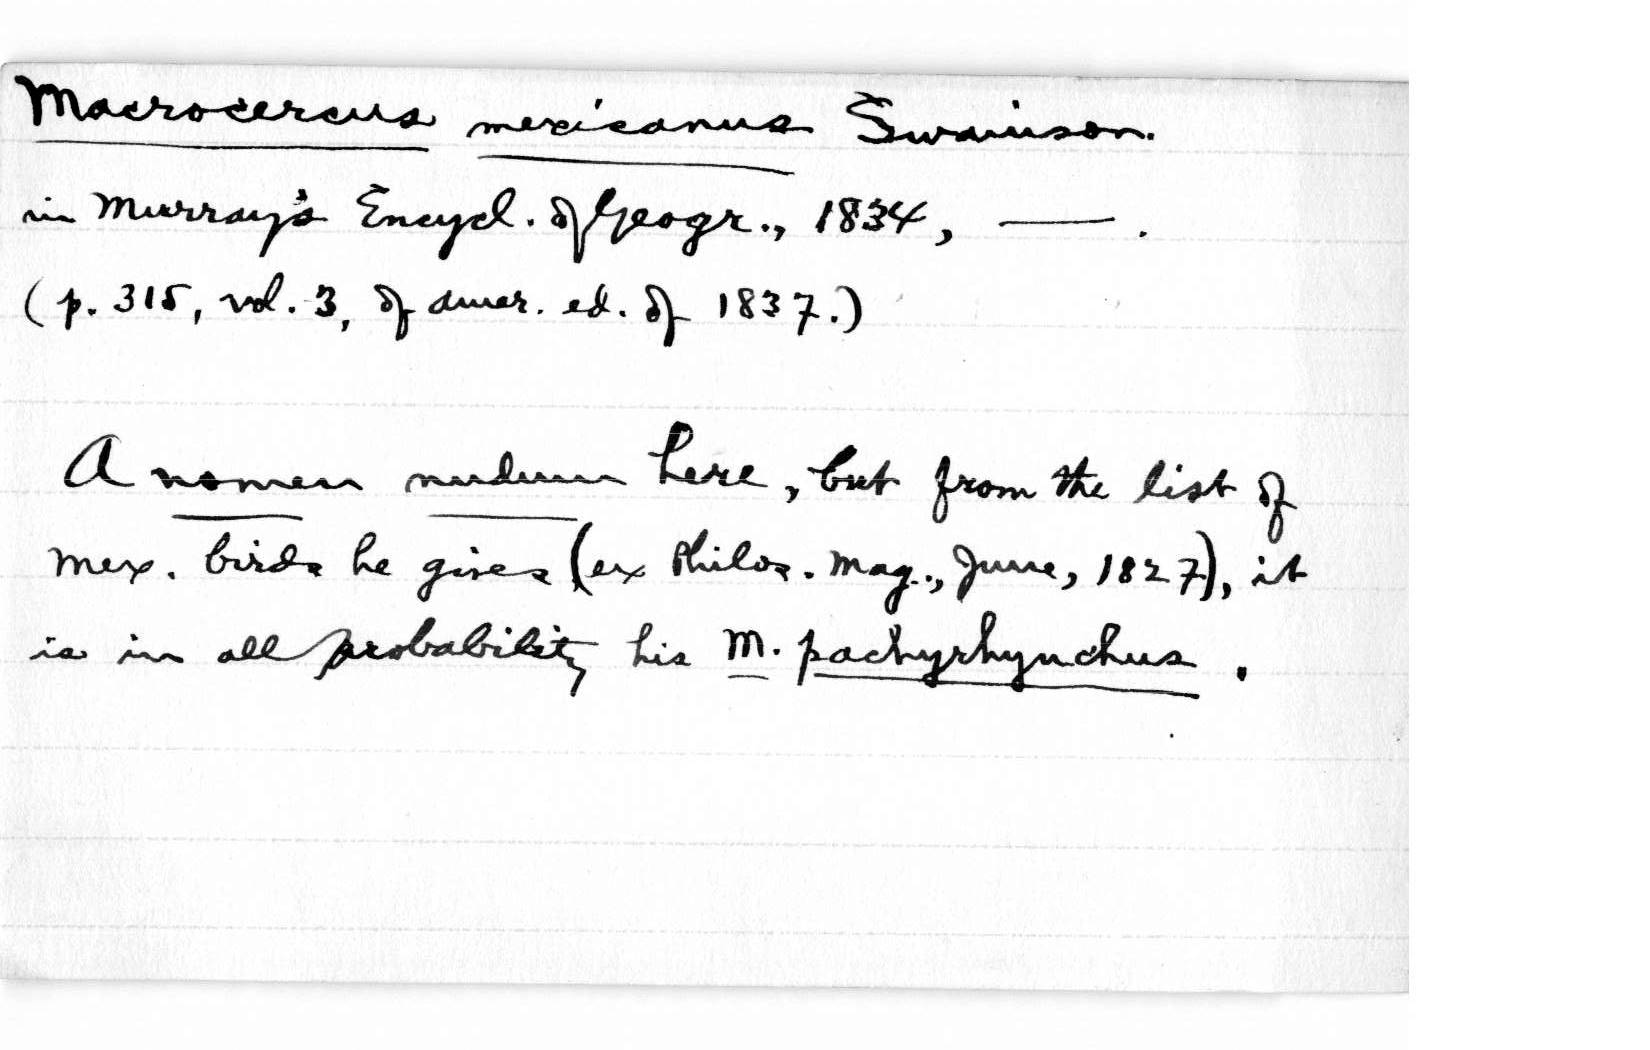 Macrocercus mexicanus Swainson.
in Murray's Encycl. of Geogr., 1834, ——.
(p. 315, vol. 3, of Amer. ed. of 1837.)
A nomen nudum here, but from the list of
Mex. birds he gives (ex Philos. Mag., June, 1827), it
is in all probability his M. pachyrhynchus.